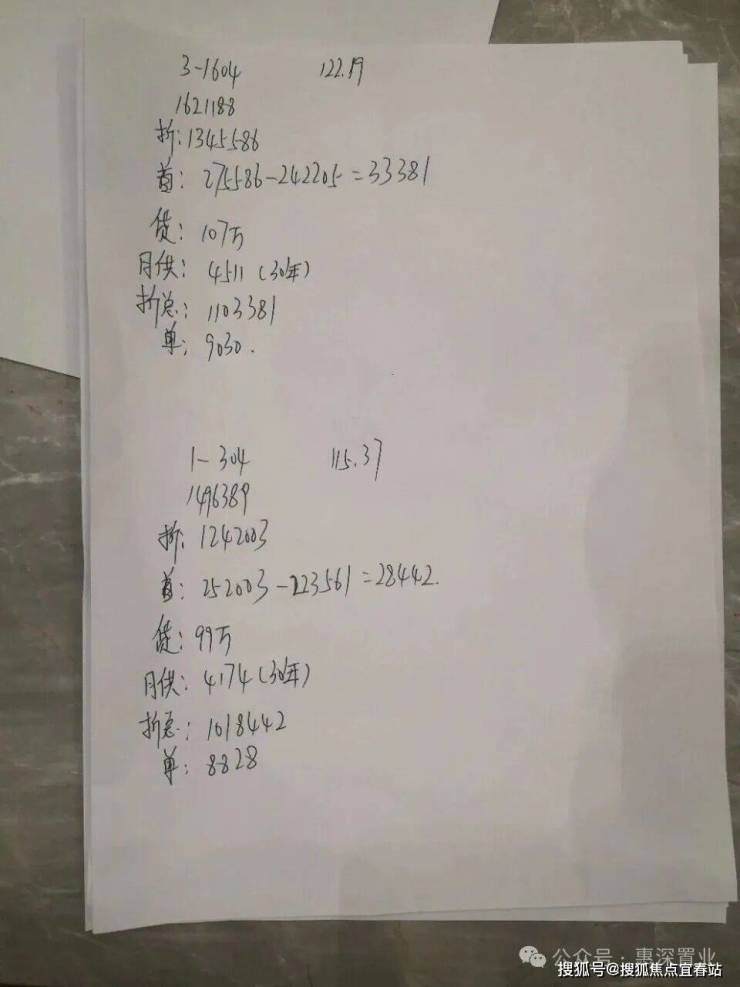 3-1604 122.19
1621188
折:1345586
首:275586-242205=33381
贷:107万
月供:4511(30年)
折总:1103381
单:9030.
1-304 115.37
1496389
折:1242003
首:252003-223561=28442.
贷:99万
月供:4174(30年)
折总:1018442
单:8828
公众号·惠深置业
搜狐号@搜狐焦点宜春站